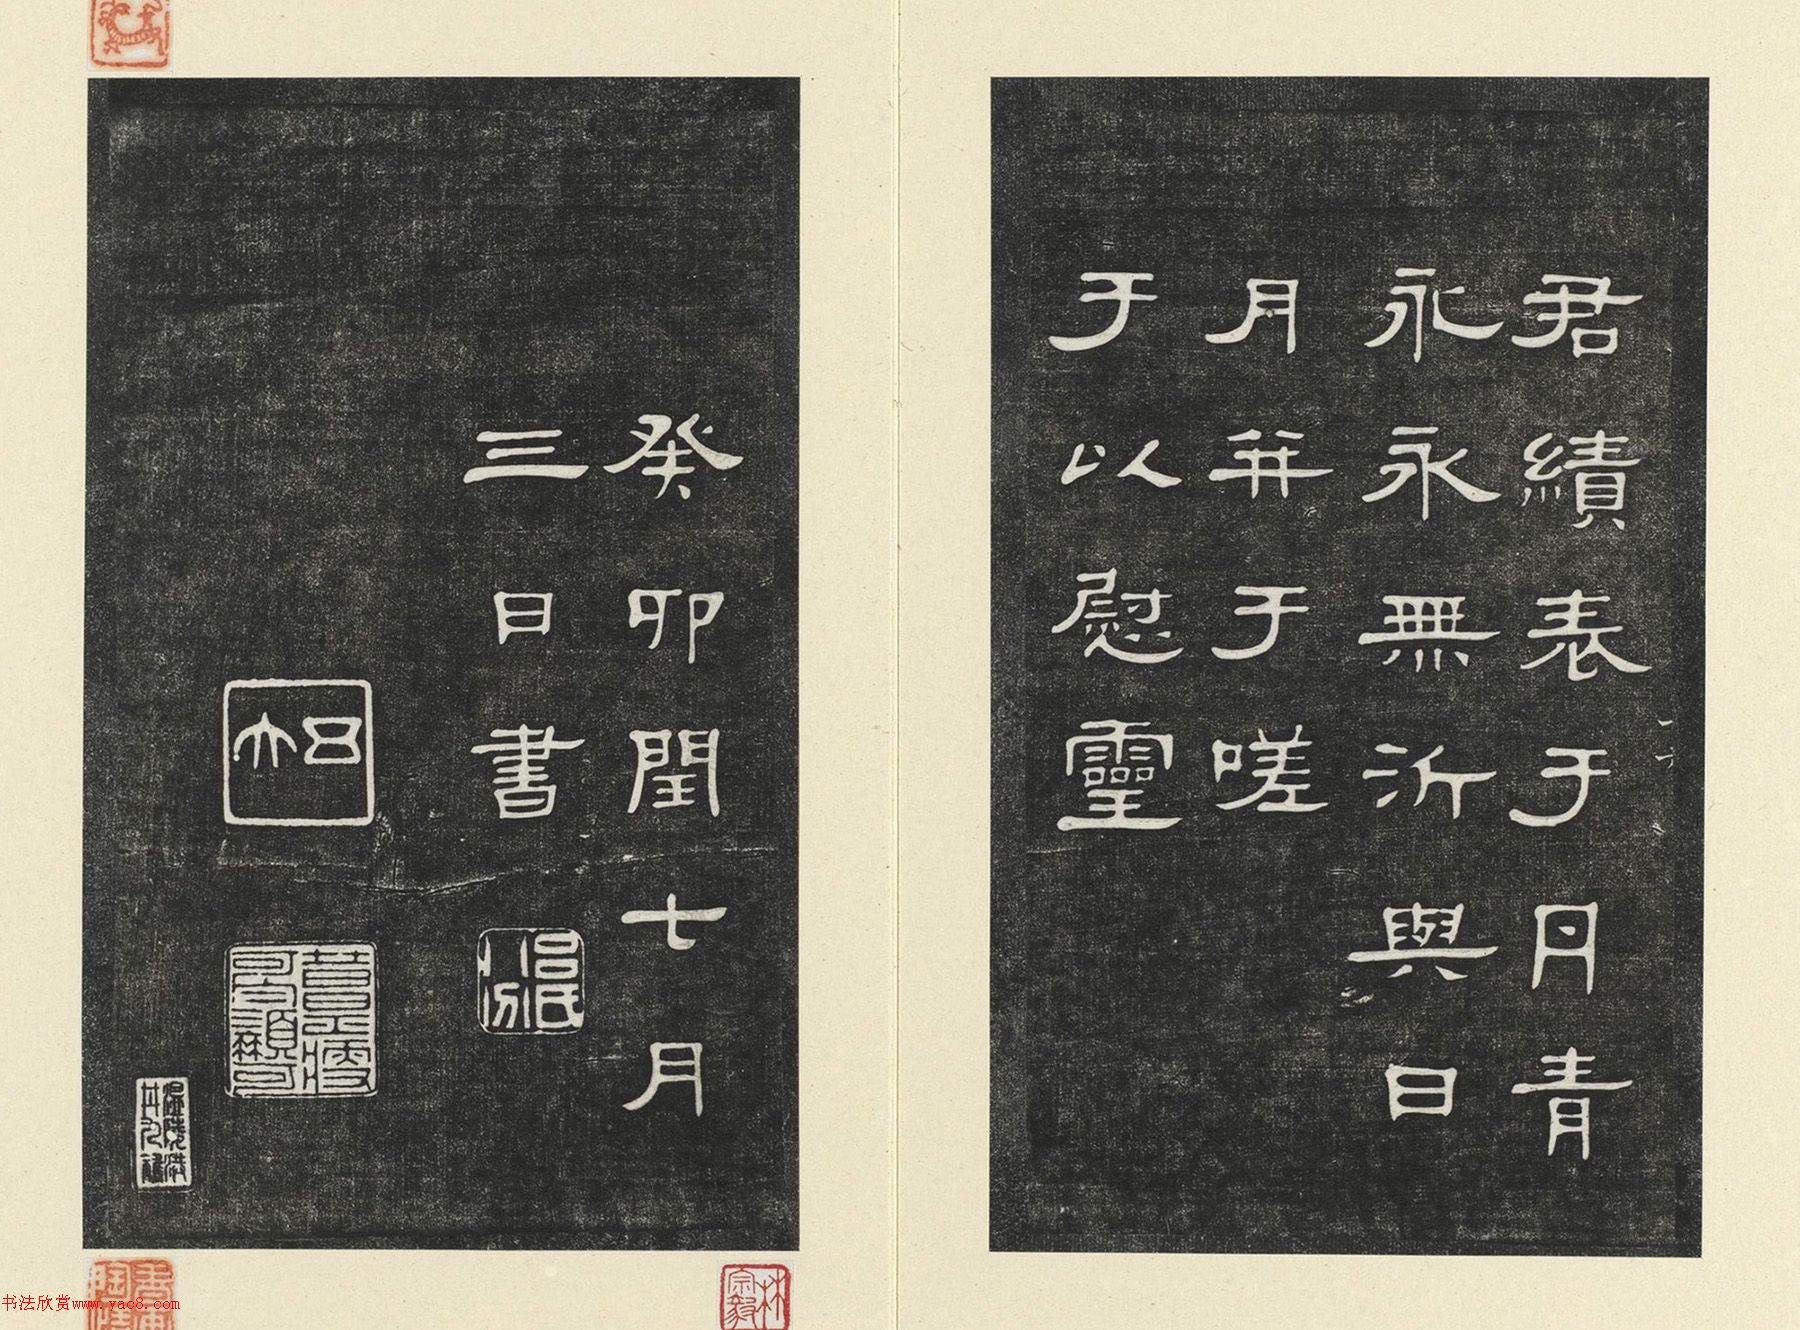 君績表于丹青
永永無沂與日
月并于嗟
于以慰靈
癸卯閏七月
三日書
林宗毅
书法欣赏www.yac8.com